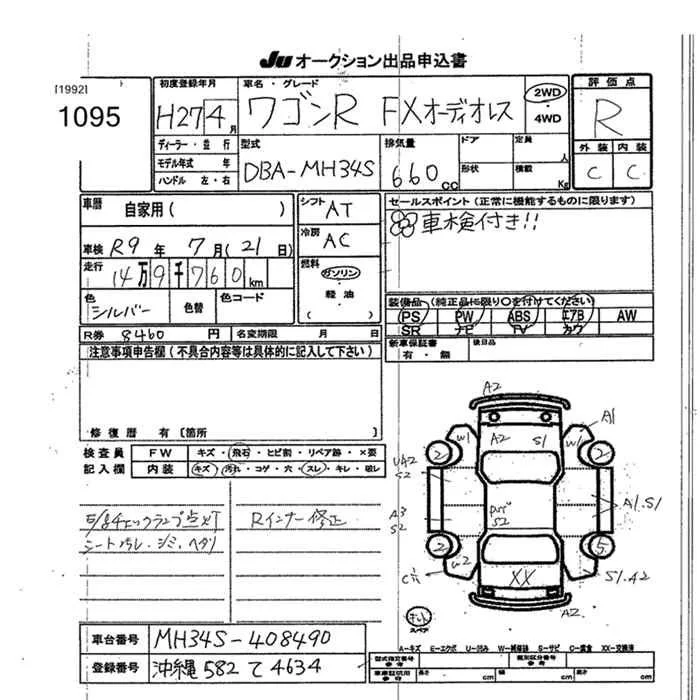 JU オークション出品申込書
[1992]
1095
初度登録年月
H27 4月
車名・グレード
ワゴンR FXオーディオレス
2WD
・4WD
評価点
R
外装 内装
C C
ディーラー・並行
モデル年式 年
ハンドル 左・右
型式
DBA-MH34S
排気量
660cc
ドア
形状
定員 人
積載 Kg
車歴
自家用( )
シフト AT
冷房 AC
燃料
ガソリン
・
軽油
セールスポイント(正常に機能するものに限ります)
車検付き!!
車検 R9年 7月(21日)
走行
14万9千760km
色
シルバー
色替
色コード
R券 8460円 名変期限 月 日
装備品(純正品に限り○を付けてください)
PS PW ABS エアB AW
SR ナビ TV カワ
新車保証書
有・無
後日品
注意事項申告欄(不具合内容等は具体的に記入して下さい)
修復歴 有〔箇所 〕
検査員
記入欄
FW キズ・飛石・ヒビ割・リペア跡・×要
内装 キズ・汚れ・コゲ・穴・スレ・キレ・破レ
チェックランプ点灯
シート汚レ・シミ・ヘタリ
Rインナー修正
A2
A1
W1
A2
S1
W1
2
2
UA2
S2
A3
S2
S2
A1.S1
2
5
W2
XX
S1.A2
A2
スペア
車台番号 MH34S-408490
登録番号 沖縄582て4634
A-キズ E-エクボ U-凹み W-補修跡 S-サビ C-腐食 XX-交換済
型式指定番号
参考
類別区分番号
参考
車庫証明用
参考
長さ cm 幅 cm 高さ cm